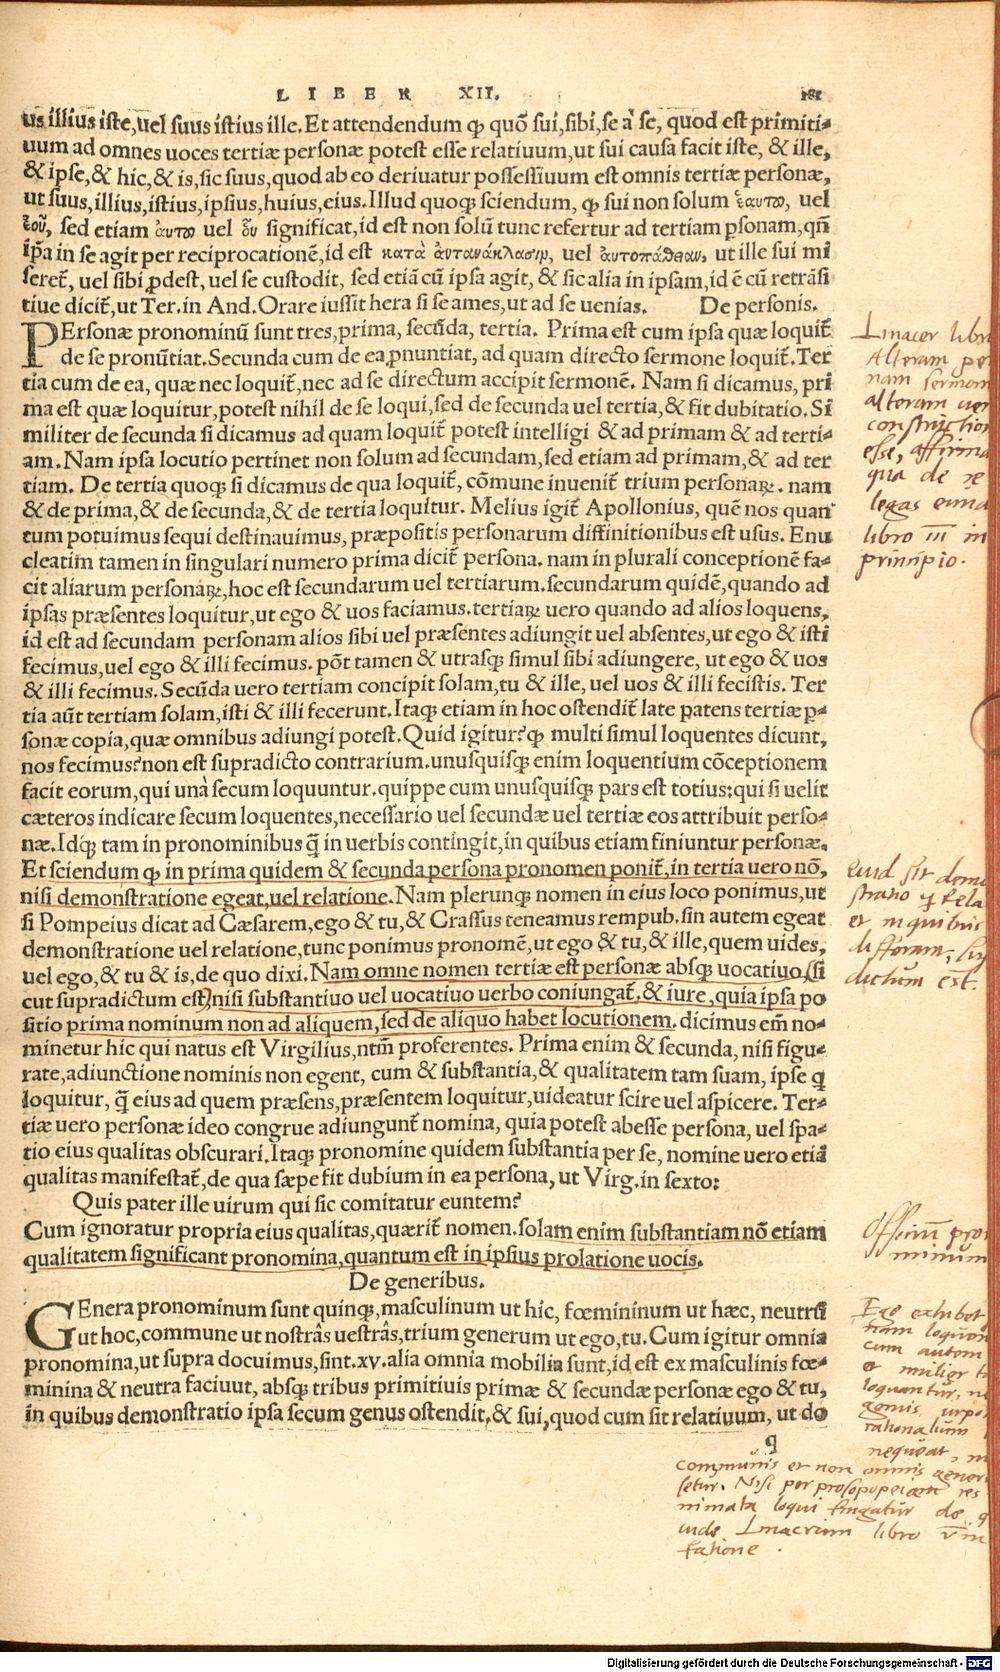 LIBER XII. 181
us illius iste,uel suus istius ille. Et attendendum ꝙ quō sui,sibi,se à se, quod est primiti-
uum ad omnes uoces tertiæ personæ potest esse relatiuum,ut sui causa facit iste, & ille,
& ipse,& hic,& is,sic suus,quod ab eo deriuatur possessiuum est omnis tertiæ personæ,
ut suus,illius,istius,ipsius,huius,eius. Illud quoqꝫ sciendum, ꝙ sui non solum ἑαυτοῦ, uel
ἑοῦ, sed etiam αὐτοῦ uel οὗ significat,id est non solū tunc refertur ad tertiam ꝑsonam,qñ
ip̄a in se agit per reciprocationē,id est κατὰ ἀντανάκλασιν, uel αὐτοπάθειαν, ut ille sui mi
seret̃, uel sibi ꝓdest, uel se custodit, sed etiā cū ipsa agit, & sic alia in ipsam,id ē cū retrāsi
tiue dicit̃,ut Ter.in And. Orare iussit hera si se ames,ut ad se uenias. De personis.
PErsonæ pronominū sunt tres,prima, secūda, tertia. Prima est cum ipsa quæ loquit̃
de se pronūtiat. Secunda cum de ea ꝓnuntiat, ad quam directo sermone loquit̃. Ter
tia cum de ea, quæ nec loquit̃,nec ad se directum accipit sermonē. Nam si dicamus, pri
ma est quæ loquitur,potest nihil de se loqui,sed de secunda uel tertia,& fit dubitatio. Si
militer de secunda si dicamus ad quam loquit̃ potest intelligi & ad primam & ad terti-
am. Nam ipsa locutio pertinet non solum ad secundam,sed etiam ad primam,& ad ter
tiam. De tertia quoqꝫ si dicamus de qua loquit̃, cōmune inuenit̃ trium personaꝝ. nam
& de prima,& de secunda,& de tertia loquitur. Melius igit̃ Apollonius, quē nos quan
tum potuimus sequi destinauimus, præpositis personarum diffinitionibus est usus. Enu
cleatim tamen in singulari numero prima dicit̃ persona. nam in plurali conceptionē fa-
cit aliarum personaꝝ,hoc est secundarum uel tertiarum.secundarum quidē,quando ad
ipsas præsentes loquitur,ut ego & uos faciamus.tertiaꝝ uero quando ad alios loquens,
id est ad secundam personam alios sibi uel præsentes adiungit uel absentes,ut ego & isti
fecimus,uel ego & illi fecimus. pōt tamen & utrasqꝫ simul sibi adiungere, ut ego & uos
& illi fecimus. Secūda uero tertiam concipit solam,tu & ille, uel uos & illi fecistis. Ter
tia aūt tertiam solam,isti & illi fecerunt. Itaqꝫ etiam in hoc ostendit̃ late patens tertiæ ꝑ-
sonæ copia,quæ omnibus adiungi potest. Quid igitur?ꝙ multi simul loquentes dicunt,
nos fecimus?non est supradicto contrarium.unusquisqꝫ enim loquentium cōceptionem
facit eorum,qui unà secum loquuntur.quippe cum unusquisqꝫ pars est totius:qui si uelit
cæteros indicare secum loquentes,necessario uel secundæ uel tertiæ eos attribuit perso-
næ. Idqꝫ tam in pronominibus q̄ in uerbis contingit,in quibus etiam finiuntur personæ.
Et sciendum ꝙ in prima quidem & secunda persona pronomen ponit̃, in tertia uero nō,
nisi demonstratione egeat,uel relatione. Nam plerunqꝫ nomen in eius loco ponimus,ut
si Pompeius dicat ad Cæsarem, ego & tu,& Crassus teneamus rempub. sin autem egeat
demonstratione uel relatione,tunc ponimus pronomē,ut ego & tu,& ille,quem uides,
uel ego,& tu & is,de quo dixi. Nam omne nomen tertiæ est personæ absqꝫ uocatiuo,(si
cut supradictum est)nisi substantiuo uel uocatiuo uerbo coniungat̃,& iure,quia ipsa po
sitio prima nominum non ad aliquem,sed de aliquo habet locutionem. dicimus em̄ no-
minetur hic qui natus est Virgilius,ntm̄ proferentes. Prima enim & secunda, nisi figu-
rate,adiunctione nominis non egent, cum & substantia,& qualitatem tam suam, ipse q
loquitur, q̄ eius ad quem præsens,præsentem loquitur,uideatur scire uel aspicere. Ter-
tiæ uero personæ ideo congrue adiungunt̃ nomina, quia potest abesse persona, uel spa-
tio eius qualitas obscurari.Itaqꝫ pronomine quidem substantia per se, nomine uero etiā
qualitas manifestat̃,de qua sæpe fit dubium in ea persona, ut Virg.in sexto:
Quis pater ille uirum qui sic comitatur euntem?
Cum ignoratur propria eius qualitas,quærit̃ nomen.solam enim substantiam nō etiam
qualitatem significant pronomina,quantum est in ipsius prolatione uocis.
De generibus.
GEnera pronominum sunt quinqꝫ,masculinum ut hic, fœmininum ut hæc, neutrū
ut hoc,commune ut nostrâs uestrâs,trium generum ut ego,tu. Cum igitur omnia
pronomina,ut supra docuimus,sint.xv.alia omnia mobilia sunt,id est ex masculinis fœ-
minina & neutra faciuut, absqꝫ tribus primitiuis primæ & secundæ personæ ego & tu,
in quibus demonstratio ipsa secum genus ostendit,& sui,quod cum sit relatiuum, ut do
q
Linacer libr
Alteram per
nam sermon
alteram uer
constructio
esse, affirma
qua de re
legas eund
libro III in
principio.
quid sit dem
stratio & Rela
et in quibus
differant,
dictum est.
Officiū pro
minum
Ego exhibet
nam loquen
cum autem
et mulier
loquantur,
rationalium
nequeat,
communis et non omnis gener
setur. Nisi per prosopopeiam res
nimata loqui fingatur de q
uide Linacrum libro V in